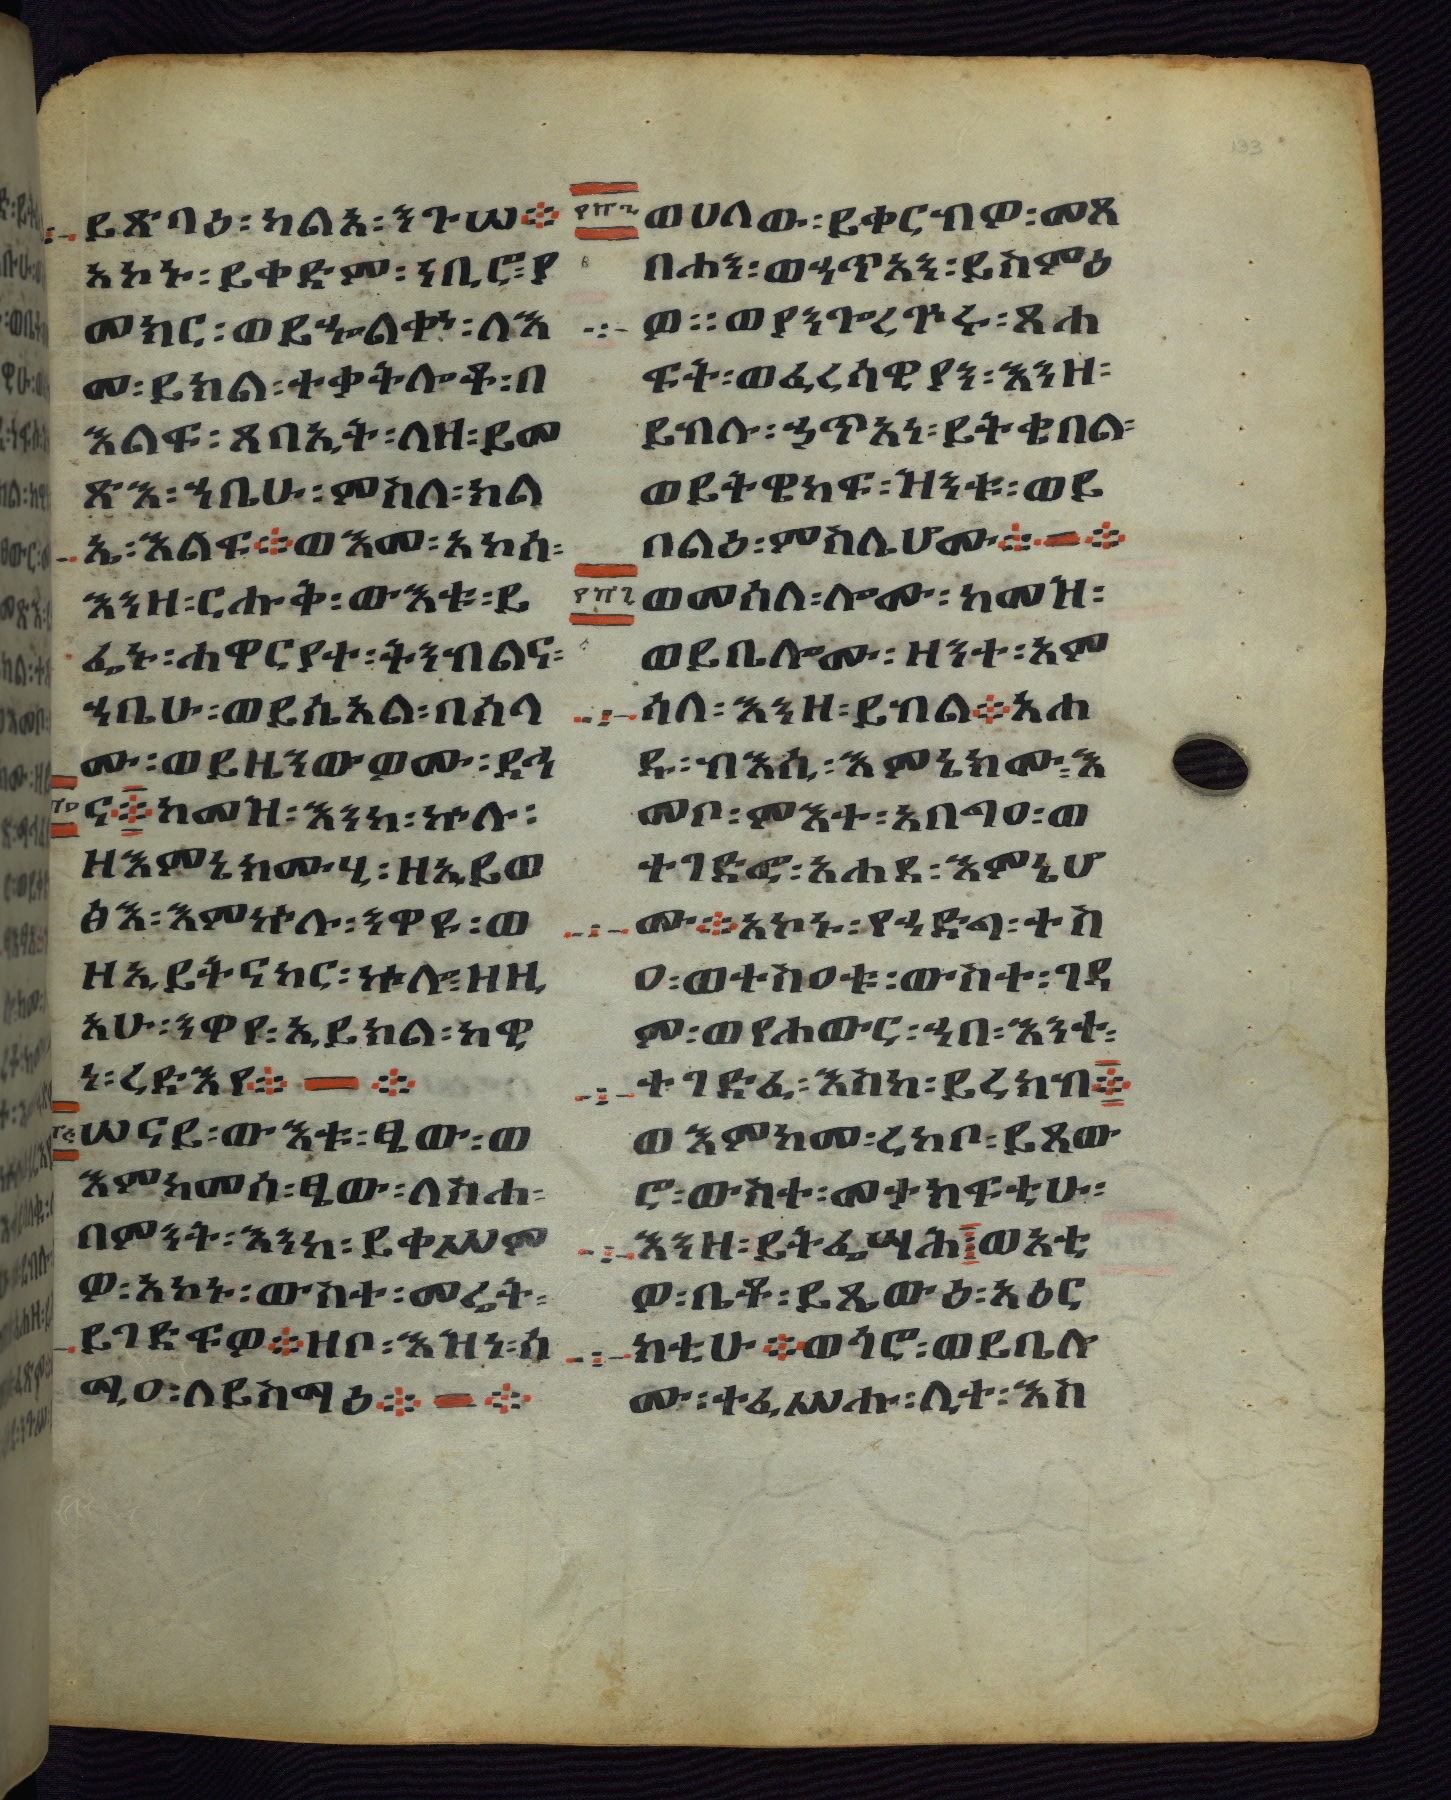 ይጽባዕ፡ ካልአ፡ ንጉሠ፨
አኮኑ፡ ይቀድም፡ ነቢሮ፡ የ
መክር፡ ወይኄልቀኑ፡ ለእ
መ፡ ይክል፡ ተቃትሎቶ፡ በ
እልፍ፡ ጸባኢት፡ ለዘ፡ ይመ
ጽእ፡ ኀቤሁ፡ ምስለ፡ ክል
ኤ፡ እልፍ፨ ወእመ፡ አኮሰ፡
እንዘ፡ ርሑቅ፡ ውእቱ፡ ይ
ፌኑ፡ ሐዋርያተ፡ ትንብልና፡
ኀቤሁ፡ ወይሴአል፡ በሰላ
ሙ፡ ወይዜንውዎሙ፡ ዳኅ
ና፨ ከመዝ፡ እንከ፡ ኵሉ፡
ዘእምኔክሙሂ፡ ዘኢይወ
ፅእ፡ እምኵሉ፡ ንዋዩ፡ ወ
ዘኢይትናከር፡ ኵሎ፡ ዘዚ
አሁ፡ ንዋየ፡ ኢይክል፡ ከዊ
ነ፡ ረድእየ፨ — ፨
ሠናይ፡ ውእቱ፡ ፄው፡ ወ
እምከመሰ፡ ፄው፡ ለስሐ፡
በምንት፡ እንከ፡ ይቀሥም
ዎ፡ አኮኑ፡ ውስተ፡ መሬት፡
ይገድፍዎ፨ ዘቦ፡ እዝነ፡ ሰ
ሚዐ፡ ለይስማዕ፨ — ፨
፻፹፭ ወሀለው፡ ይቀርብዎ፡ መጸ
በሐን፡ ወኃጥአን፡ ይስምዕ
ዎ፡፡ ወያንጐረጕሩ፡ ጸሐ
ፍት፡ ወፈሪሳዊያን፡ እንዘ፡
ይብሉ፡ ኃጥአነ፡ ይትቄበል፡
ወይትዌከፍ፡ ዝንቱ፡ ወይ
በልዕ፡ ምስሌሆሙ፨—፨
፻፹፮ ወመሰለ፡ ሎሙ፡ ከመዝ፡
ወይቤሎሙ፡ ዘንተ፡ አም
ሳለ፡ እንዘ፡ ይብል፨ አሐ
ዱ፡ ብእሲ፡ እምኔክሙ፡ እ
መቦ፡ ምእተ፡ አባግዐ፡ ወ
ተገድፎ፡ አሐዱ፡ እምኔሆ
ሙ፨ አኮኑ፡ የኀድግ፡ ተስ
ዐ፡ ወተስዐቱ፡ ውስተ፡ ገዳ
ም፡ ወየሐውር፡ ኀበ፡ እንተ፡
ተገድፈ፡ እስከ፡ ይረክብ፨
ወእምከመ፡ ረከቦ፡ ይጸው
ሮ፡ ውስተ፡ መትከፍቲሁ፡
እንዘ፡ ይትፌሣሕ፡ ወአቲ
ዎ፡ ቤቶ፡ ይጼውዕ፡ አዕር
ክቲሁ፨ ወጎሮ፡ ወይቤሎ
ሙ፡ ተፈሥሑ፡ ሊተ፡ እስ